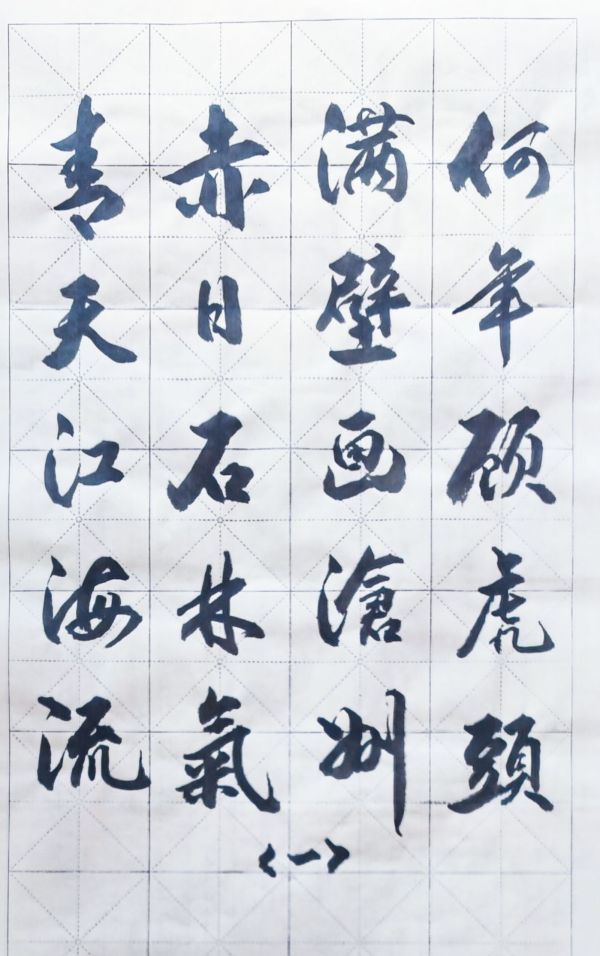 何年顾虎頭
满壁画滄州
赤日石林氣
青天江海流
<一>